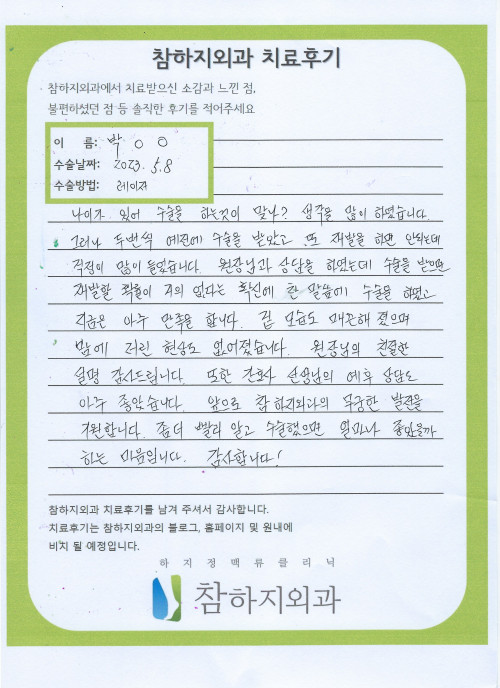 참하지외과 치료후기
참하지외과에서 치료받으신 소감과 느낀 점,
불편하셨던 점 등 솔직한 후기를 적어주세요
이 름: 박 ○ ○
수술날짜: 2023. 5.8
수술방법: 레이저
나이가 있어 수술을 하는것이 맞나? 생각을 많이 하였습니다.
그러나 두번씩 예전에 수술을 받았고 또 재발을 하면 안되는데
걱정이 많이 들었습니다. 원장님과 상담을 하였는데 수술을 받으면
재발할 확율이 거의 없다는 확신에 찬 말씀에 수술을 하였고
지금은 아주 만족을 합니다. 겉 모습도 매끈해 졌으며
밤에 저린 현상도 없어졌습니다. 원장님의 친절한
설명 감사드립니다. 또한 간호사 선생님의 예후 상담도
아주 좋았습니다. 앞으로 참하지외과의 무궁한 발전을
기원합니다. 좀더 빨리 알고 수술했으면 얼마나 좋았을까
하는 마음입니다. 감사합니다!
참하지외과 치료후기를 남겨 주셔서 감사합니다.
치료후기는 참하지외과의 블로그, 홈페이지 및 원내에
비치 될 예정입니다.
하지정맥류클리닉
참하지외과